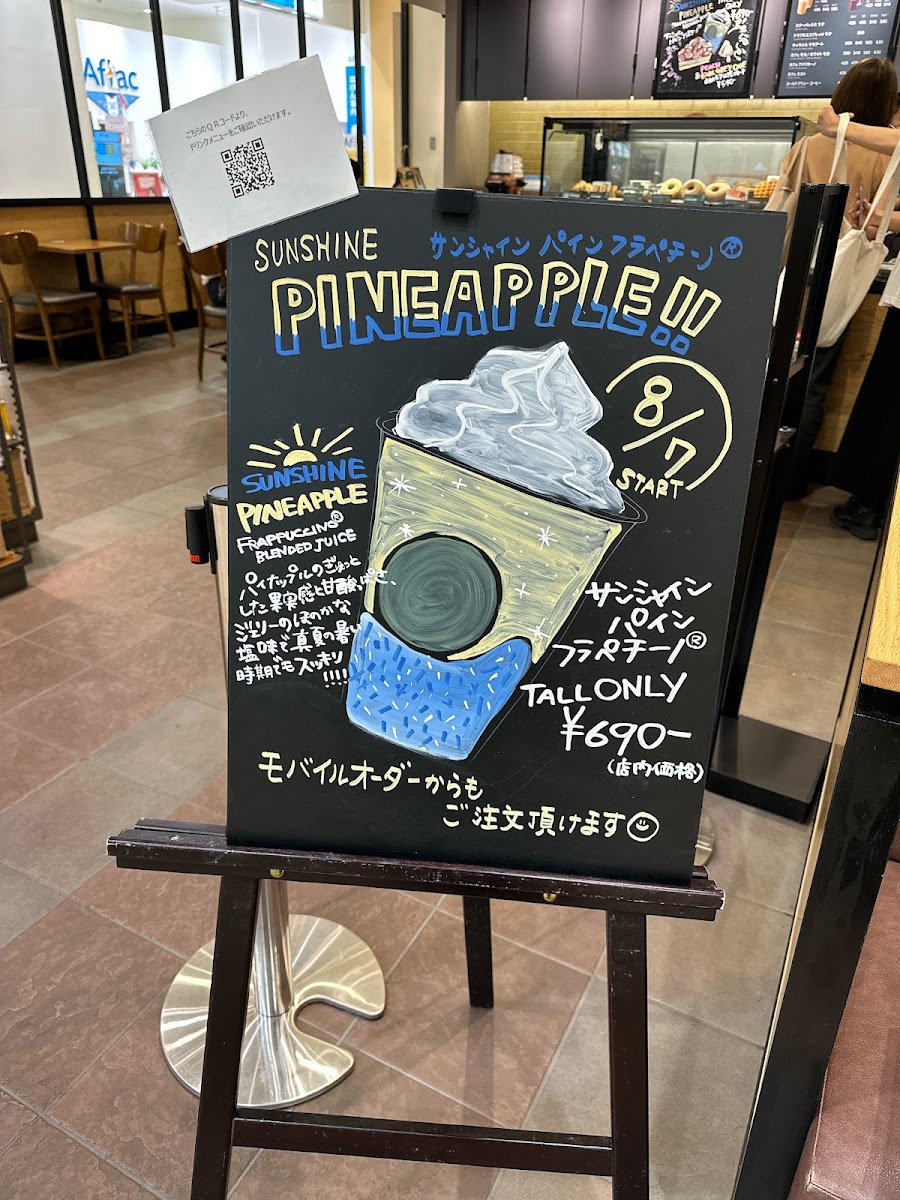 Aflac
こちらのQRコードより、
ドリンクメニューをご確認いただけます。
SUNSHINE
PINEAPPLE
SUNSHINE
サンシャイン パイン フラペチーノ®
PINEAPPLE!!
8/7
START
SUNSHINE
PINEAPPLE
FRAPPUCCINO®
BLENDED JUICE
パイナップルのぎゅっと
した果実感と甘酸っぱさ、
ジェリーのほのかな
塩味で真夏の暑い
時期でもスッキリ
!!!!
サンシャイン
パイン
フラペチーノ®
TALL ONLY
¥690-
(店内価格)
モバイルオーダーからも
ご注文頂けます